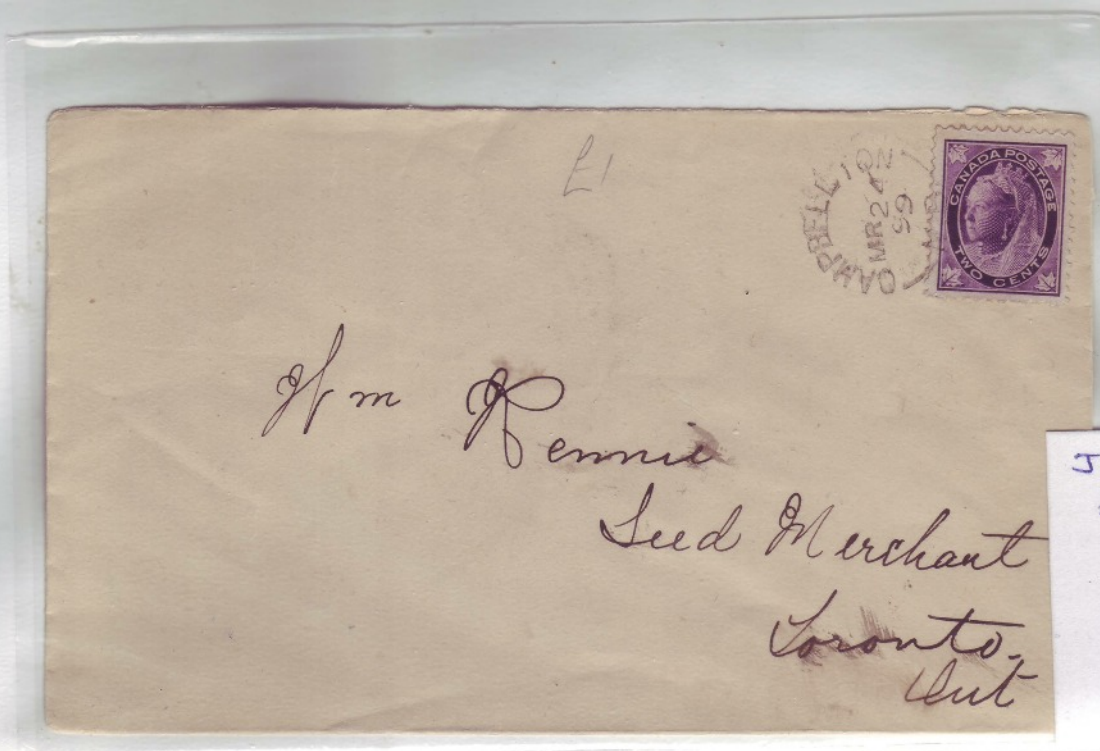 £1
CAMPBELLTON
MR 24
99
CANADA POSTAGE
TWO CENTS
Wm Rennie
Seed Merchant
Toronto,
Ont
J